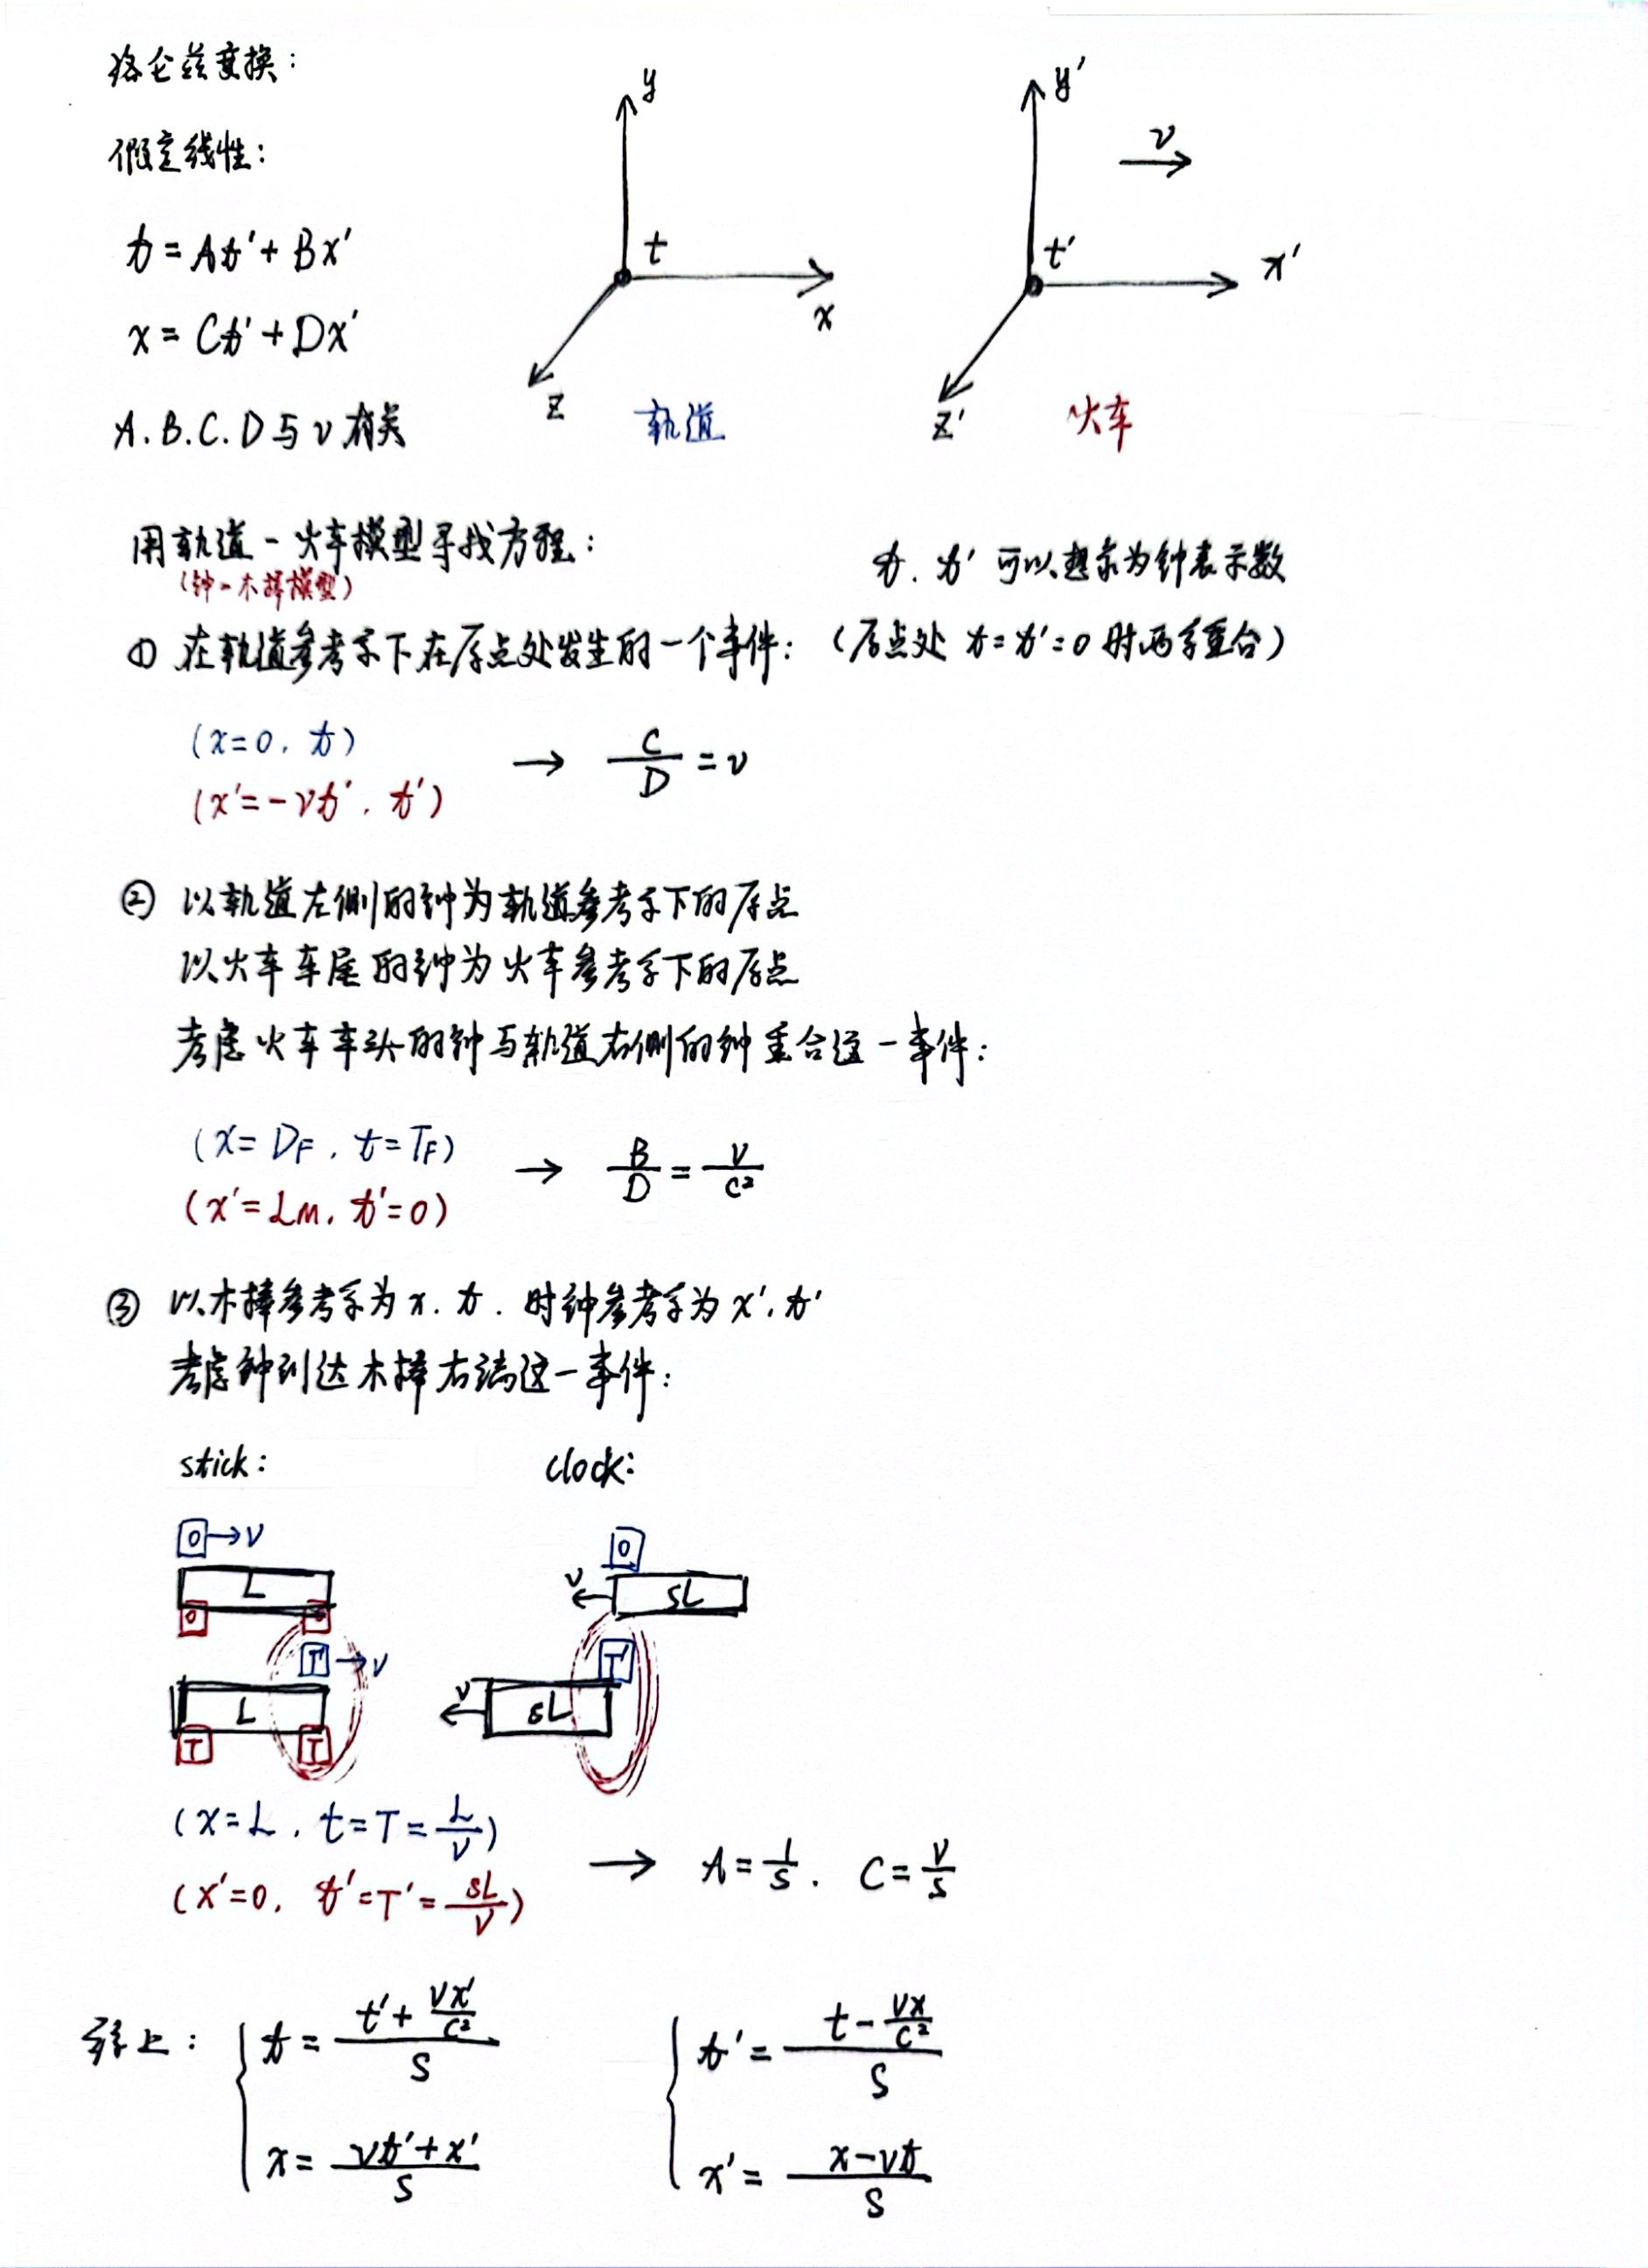 洛仑兹变换：
假定线性：
t = At' + Bx'
x = Ct' + Dx'
A. B. C. D 与 v 有关
y
t
x
z
轨道
y'
v
t'
x'
z'
火车
用轨道-火车模型寻找方程：
(钟-木棒模型)
t. t' 可以想象为钟表示数
① 在轨道参考系下在原点处发生的一个事件：（原点处 t=t'=0 时两系重合）
(x=0, t)
(x'=-vt', t')
→ C/D = v
② 以轨道左侧的钟为轨道参考系下的原点
以火车车尾的钟为火车参考系下的原点
考虑火车车头的钟与轨道右侧的钟重合这一事件：
(x=D_F, t=T_F)
(x'=Lm, t'=0)
→ B/D = v/c²
③ 以木棒参考系为 x. t. 时钟参考系为 x', t'
考虑钟到达木棒右端这一事件：
stick:
clock:
0 → v
L
0 0
T' → v
L
T T
0
v ← sL
T'
v ← sL
(x=L, t=T=L/v)
(x'=0, t'=T'=sL/v)
→ A=1/s. C=v/s
综上：
t = (t' + vx'/c²)/s
x = (vt'+x')/s
t' = (t - vx/c²)/s
x' = (x-vt)/s